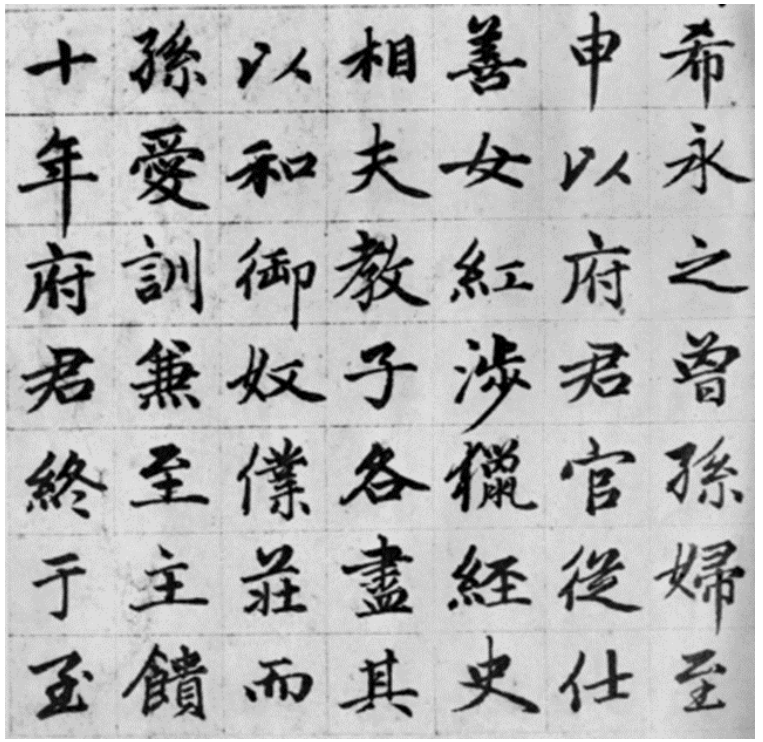 希永之曾孫婦至
申以府君官從仕
善女紅涉獵經史
相夫教子各盡其
以和御奴僕莊而
孫愛訓兼至主饋
十年府君終于至